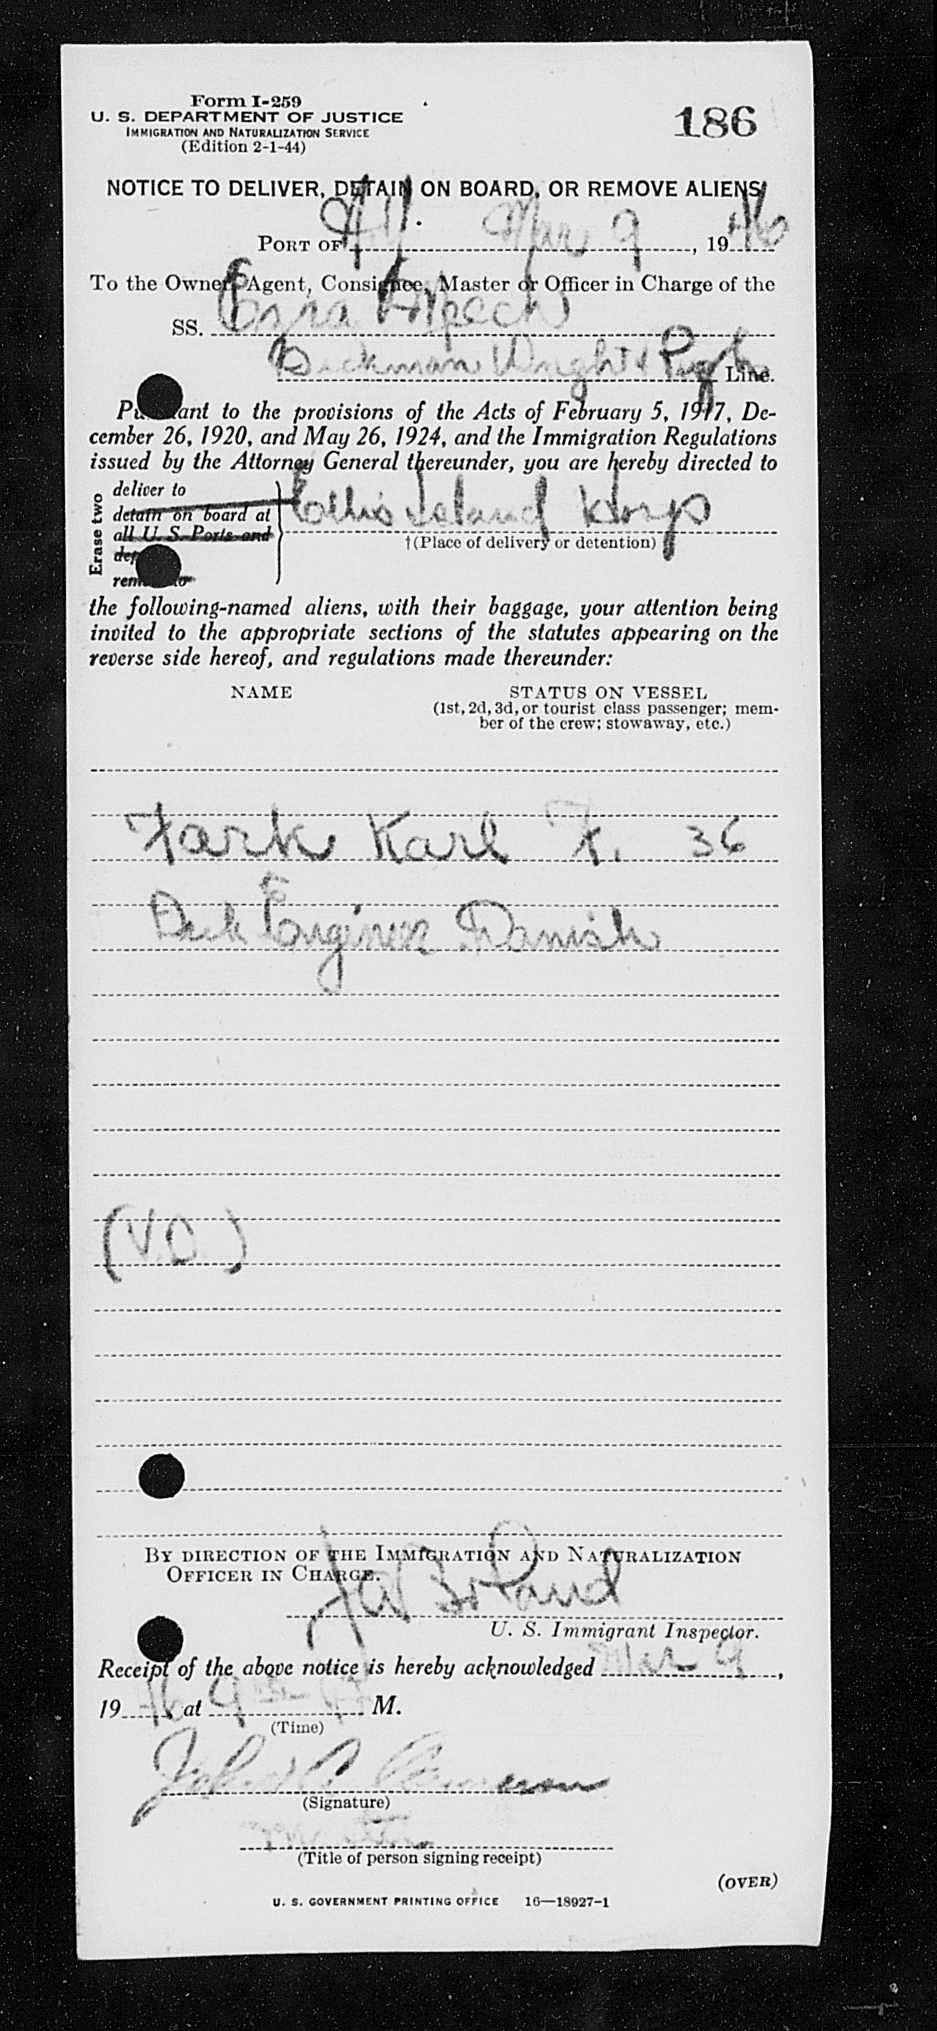 Form I-259
U. S. DEPARTMENT OF JUSTICE
IMMIGRATION AND NATURALIZATION SERVICE
(Edition 2-1-44)
186
NOTICE TO DELIVER, DETAIN ON BOARD, OR REMOVE ALIENS
PORT OF N.Y. Mar 9, 1946
To the Owner, Agent, Consignee, Master or Officer in Charge of the
SS. Ezra
Dickman Wright & Pugh Line.
Pursuant to the provisions of the Acts of February 5, 1917, De-
cember 26, 1920, and May 26, 1924, and the Immigration Regulations
issued by the Attorney General thereunder, you are hereby directed to
Erase two
deliver to
detain on board at
all U. S. Ports and
remove to
Ellis Island Hosp
†(Place of delivery or detention)
the following-named aliens, with their baggage, your attention being
invited to the appropriate sections of the statutes appearing on the
reverse side hereof, and regulations made thereunder:
NAME
STATUS ON VESSEL
(1st, 2d, 3d, or tourist class passenger; mem-
ber of the crew; stowaway, etc.)
Fark Karl F. 36
Deck Engineer Danish
(V.D.)
BY DIRECTION OF THE IMMIGRATION AND NATURALIZATION
OFFICER IN CHARGE.
U. S. Immigrant Inspector.
Receipt of the above notice is hereby acknowledged Mar 9,
1946 at 9 M.
(Time)
John
(Signature)
Master
(Title of person signing receipt)
(OVER)
U. S. GOVERNMENT PRINTING OFFICE 16—18927-1